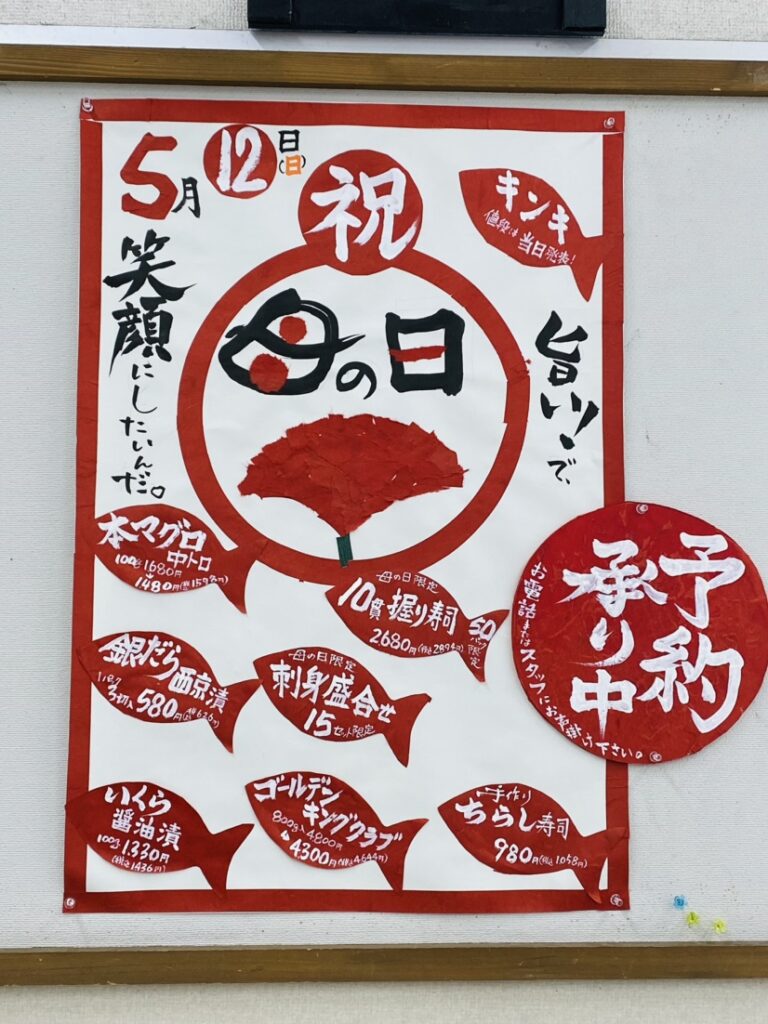 5月12日(日)
祝
母の日
旨い!で、
笑顔にしたいんだ。
キンキ
値段は当日発表!
本マグロ
中トロ
100g 1680円
1480円(税込1598円)
母の日限定
10貫握り寿司
2680円(税込2894円)
50パック限定
銀だら西京漬
1パック
2切入 580円(税込626円)
母の日限定
刺身盛合せ
15セット限定
いくら
醤油漬
100g 1330円
(税込1436円)
ゴールデン
キングクラブ
800g入4800円
4300円(税込4644円)
手作り
ちらし寿司
980円(税込1058円)
予約
承り中
お電話またはスタッフにお声掛け下さい。